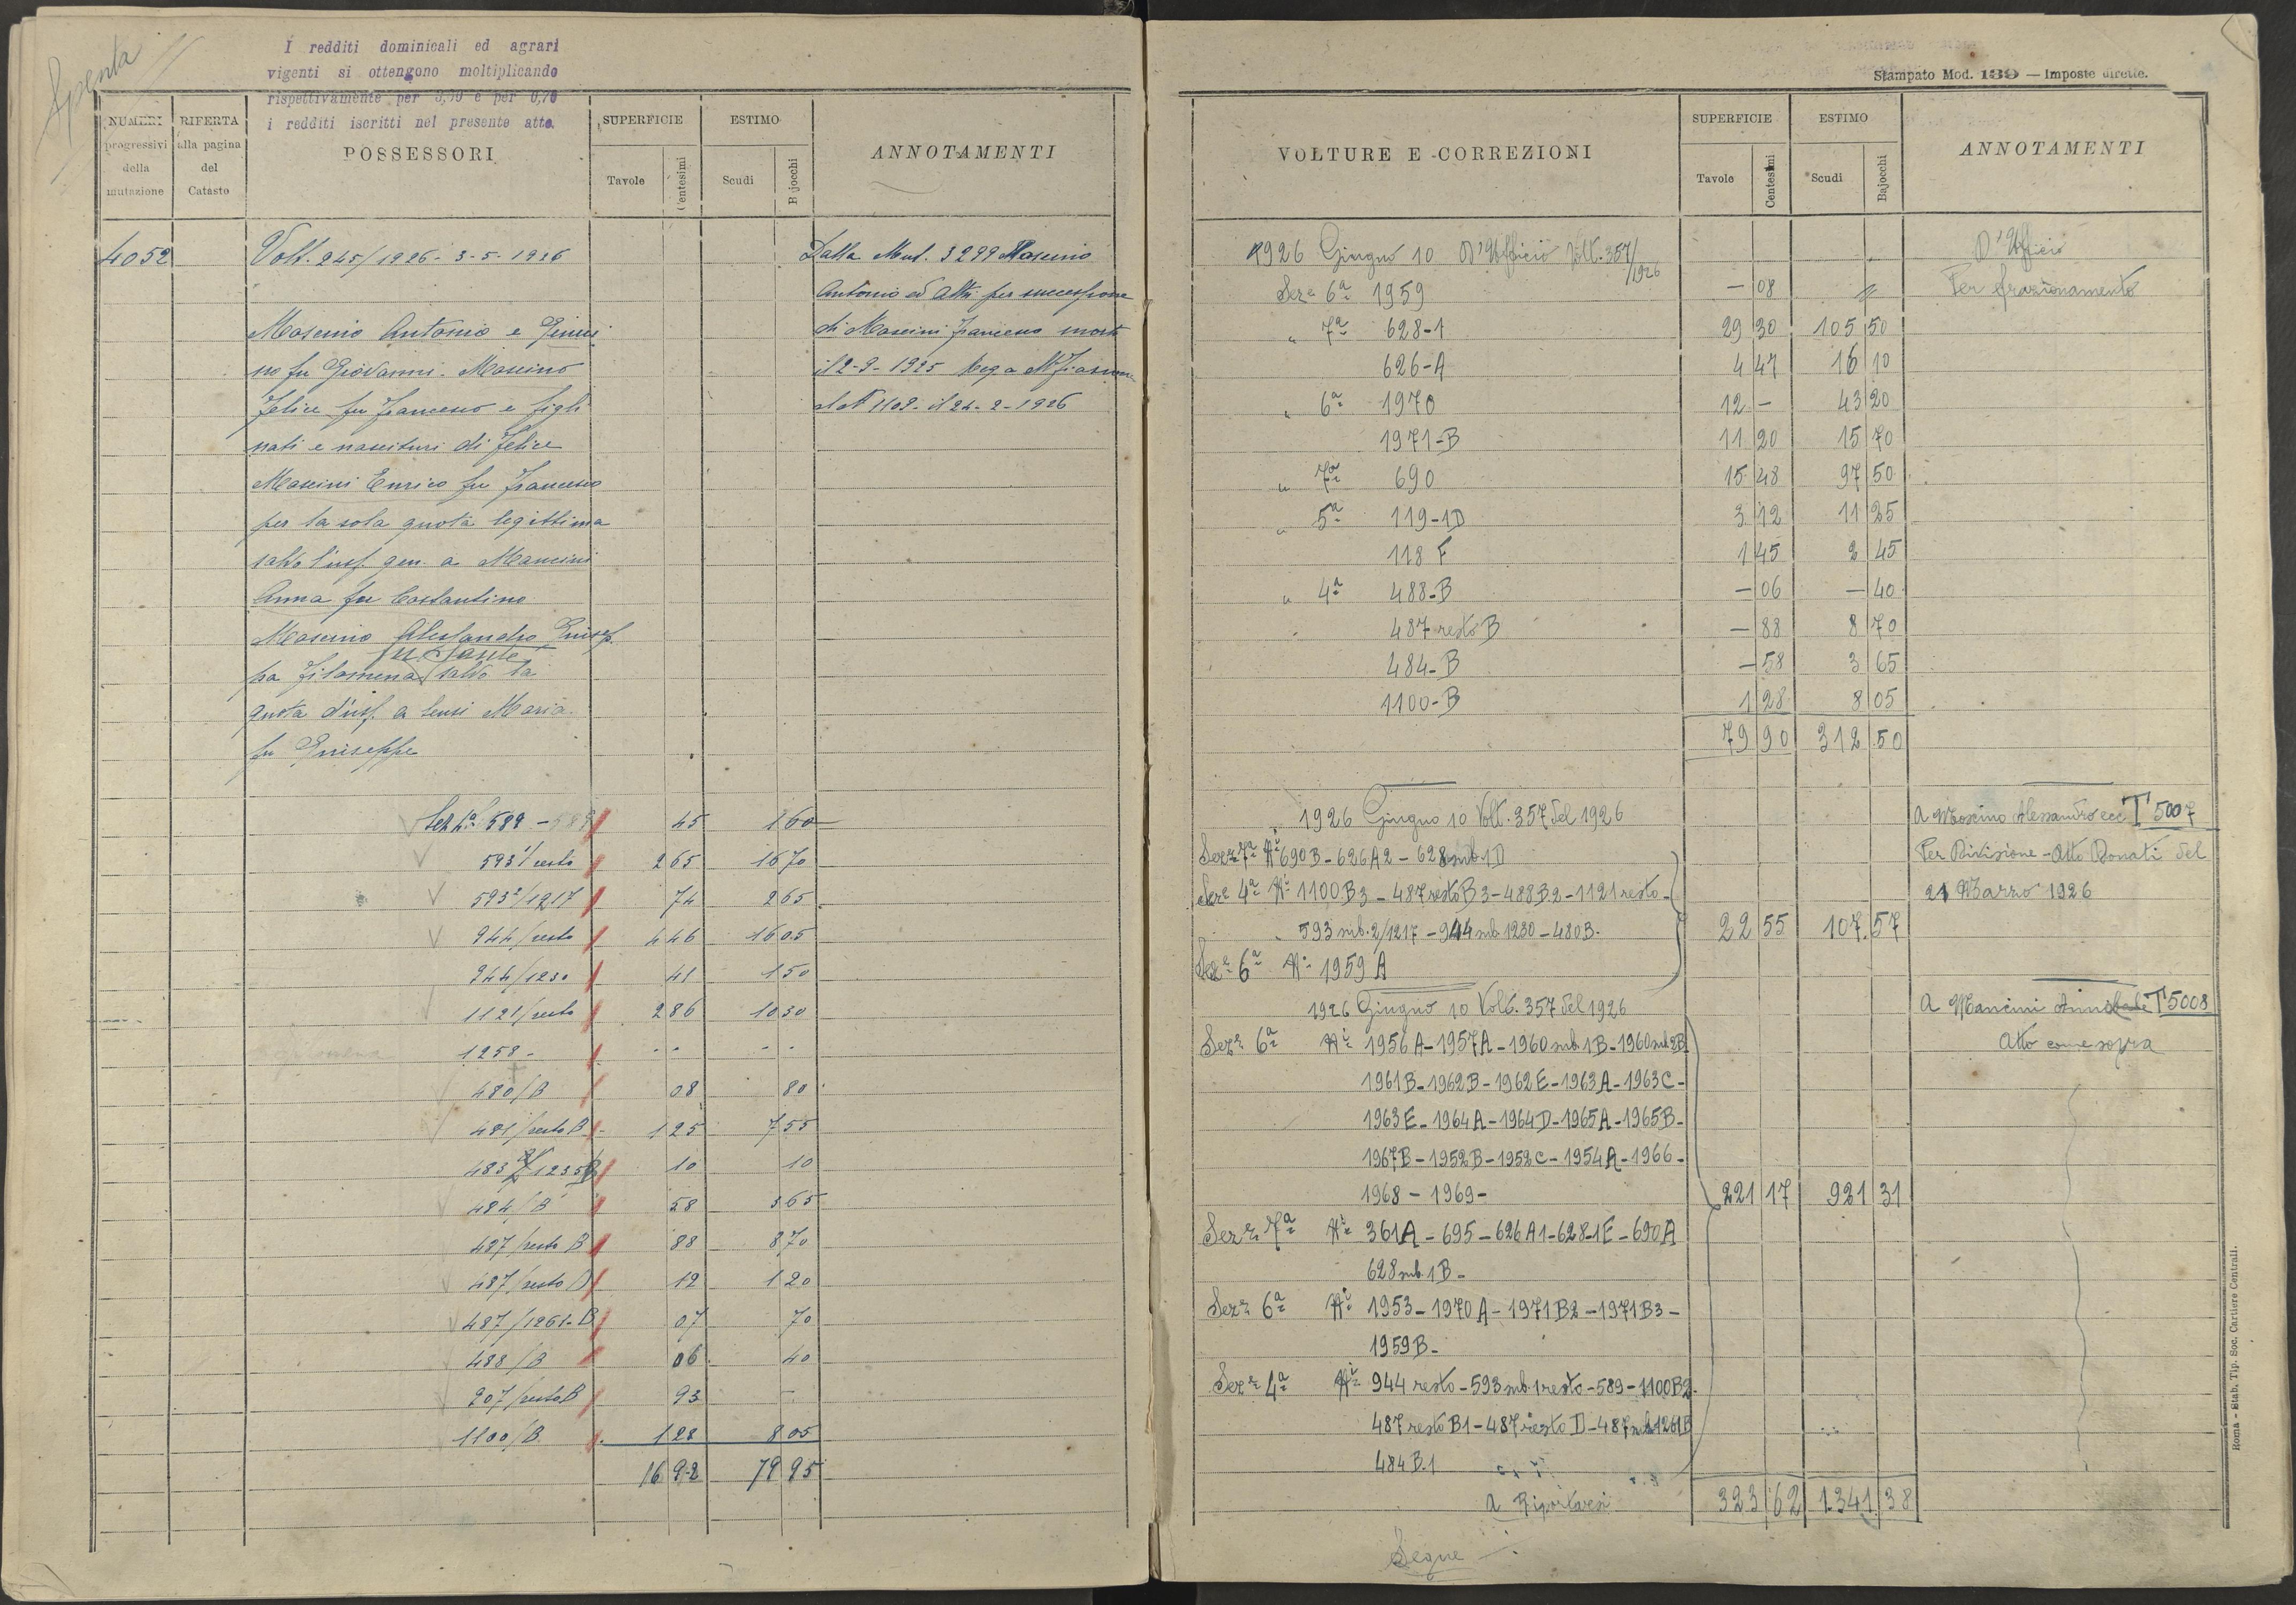 Spenta
I redditi dominicali ed agrari
vigenti si ottengono moltiplicando
rispettivamente per 3,50 e per 0,70
i redditi iscritti nel presente atto.
NUMERI progressivi della mutazione
RIFERTA alla pagina del Catasto
POSSESSORI
SUPERFICIE
Tavole Centesimi
ESTIMO
Scudi Bajocchi
ANNOTAMENTI
4052 Volt. 245/1926 - 3-5-1926 Dalla Mut. 3299 Moscino
Antonio ed Altri per successione
Moscino Antonio e di Mancini Francesco morto
no fu Giovanni - Moscino il 2-9-1925 Reg a
Felice fu Francesco e figli al N 1109 - il 24-2-1926
nati e nascituri di Felice
Mancini Enrico fu Francesco
per la sola quota legittima
salvo l'usf. gen. a Mancini
Anna fu Costantino
Moscino Alessandro Giusep.
fu Sante
pa Filomena salvo la
quota d'usf. a Censi Maria
fu Giuseppe
Sez 4ª 589 - 589 45 1 60
593 1/resto 2 65 16 70
593 2/1217 74 2 65
944/resto 4 46 16 05
944/1230 41 1 50
1121/resto 2 86 10 30
1258 - - - - -
480/B 08 80
481/resto B 1 25 7 55
483 1235 B 10 10
484/B 58 3 65
487/resto B 88 8 70
487/resto D 12 1 20
487/1261-B 07 70
488/B 06 40
907/resto B 93 -
1100/B 1 28 8 05
16 92 79 95
Stampato Mod. 139 — Imposte dirette.
VOLTURE E CORREZIONI
SUPERFICIE
Tavole Centesimi
ESTIMO
Scudi Bajocchi
ANNOTAMENTI
1926 Giugno 10 D'Ufficio Volt. 357/1926 D'Ufficio
Seze 6ª 1959 — 08 " Per frazionamento
" 7ª 628-1 29 30 105 50
626-A 4 47 16 10
" 6ª 1970 12 - 43 20
1971-B 11 20 15 70
" 7ª 690 15 48 97 50
" 5ª 119-1D 3 12 11 25
118 F 1 45 2 45
" 4ª 488-B — 06 — 40
487 resto B — 88 8 70
484-B — 58 3 65
1100-B 1 28 8 05
79 90 312 50
1926 Giugno 10 Volt. 357 del 1926 A Moscino Alessandro ecc T 5007
Seze 7ª Ni 690B - 626A2 - 628 sub 1D Per Divisione - Atto Donati del
Seze 4ª Ni 1100B3 - 487 resto B3 - 488B2 - 1121 resto - 21 Marzo 1926
593 sub. 2/1217 - 944 sub. 1230 - 480B. 22 55 107 57
Seze 6ª Ni 1959 A
1926 Giugno 10 Volt. 357 del 1926 A Mancini T 5008
Seze 6ª Ni 1956A - 1957A - 1960 sub. 1B - 1960 sub 2B Atto come sopra
1961B - 1962B - 1962E - 1963A - 1963C -
1963E - 1964A - 1964D - 1965A - 1965B -
1967B - 1952B - 1952C - 1954A - 1966 -
1968 - 1969 - 221 17 921 31
Seze 7ª Ni 361A - 695 - 626A1 - 628-1E - 690A
628 sub. 1B -
Seze 6ª Ni 1953 - 1970A - 1971B2 - 1971B3 -
1959B -
Seze 4ª Ni 944 resto - 593 sub. 1 resto - 589 - 1100B2 -
487 resto B1 - 487 resto D - 487 sub 1261B
484B.1
a Riportarsi 323 62 1341 38
Segue
Roma - Stab. Tip. Soc. Cartiere Centrali.